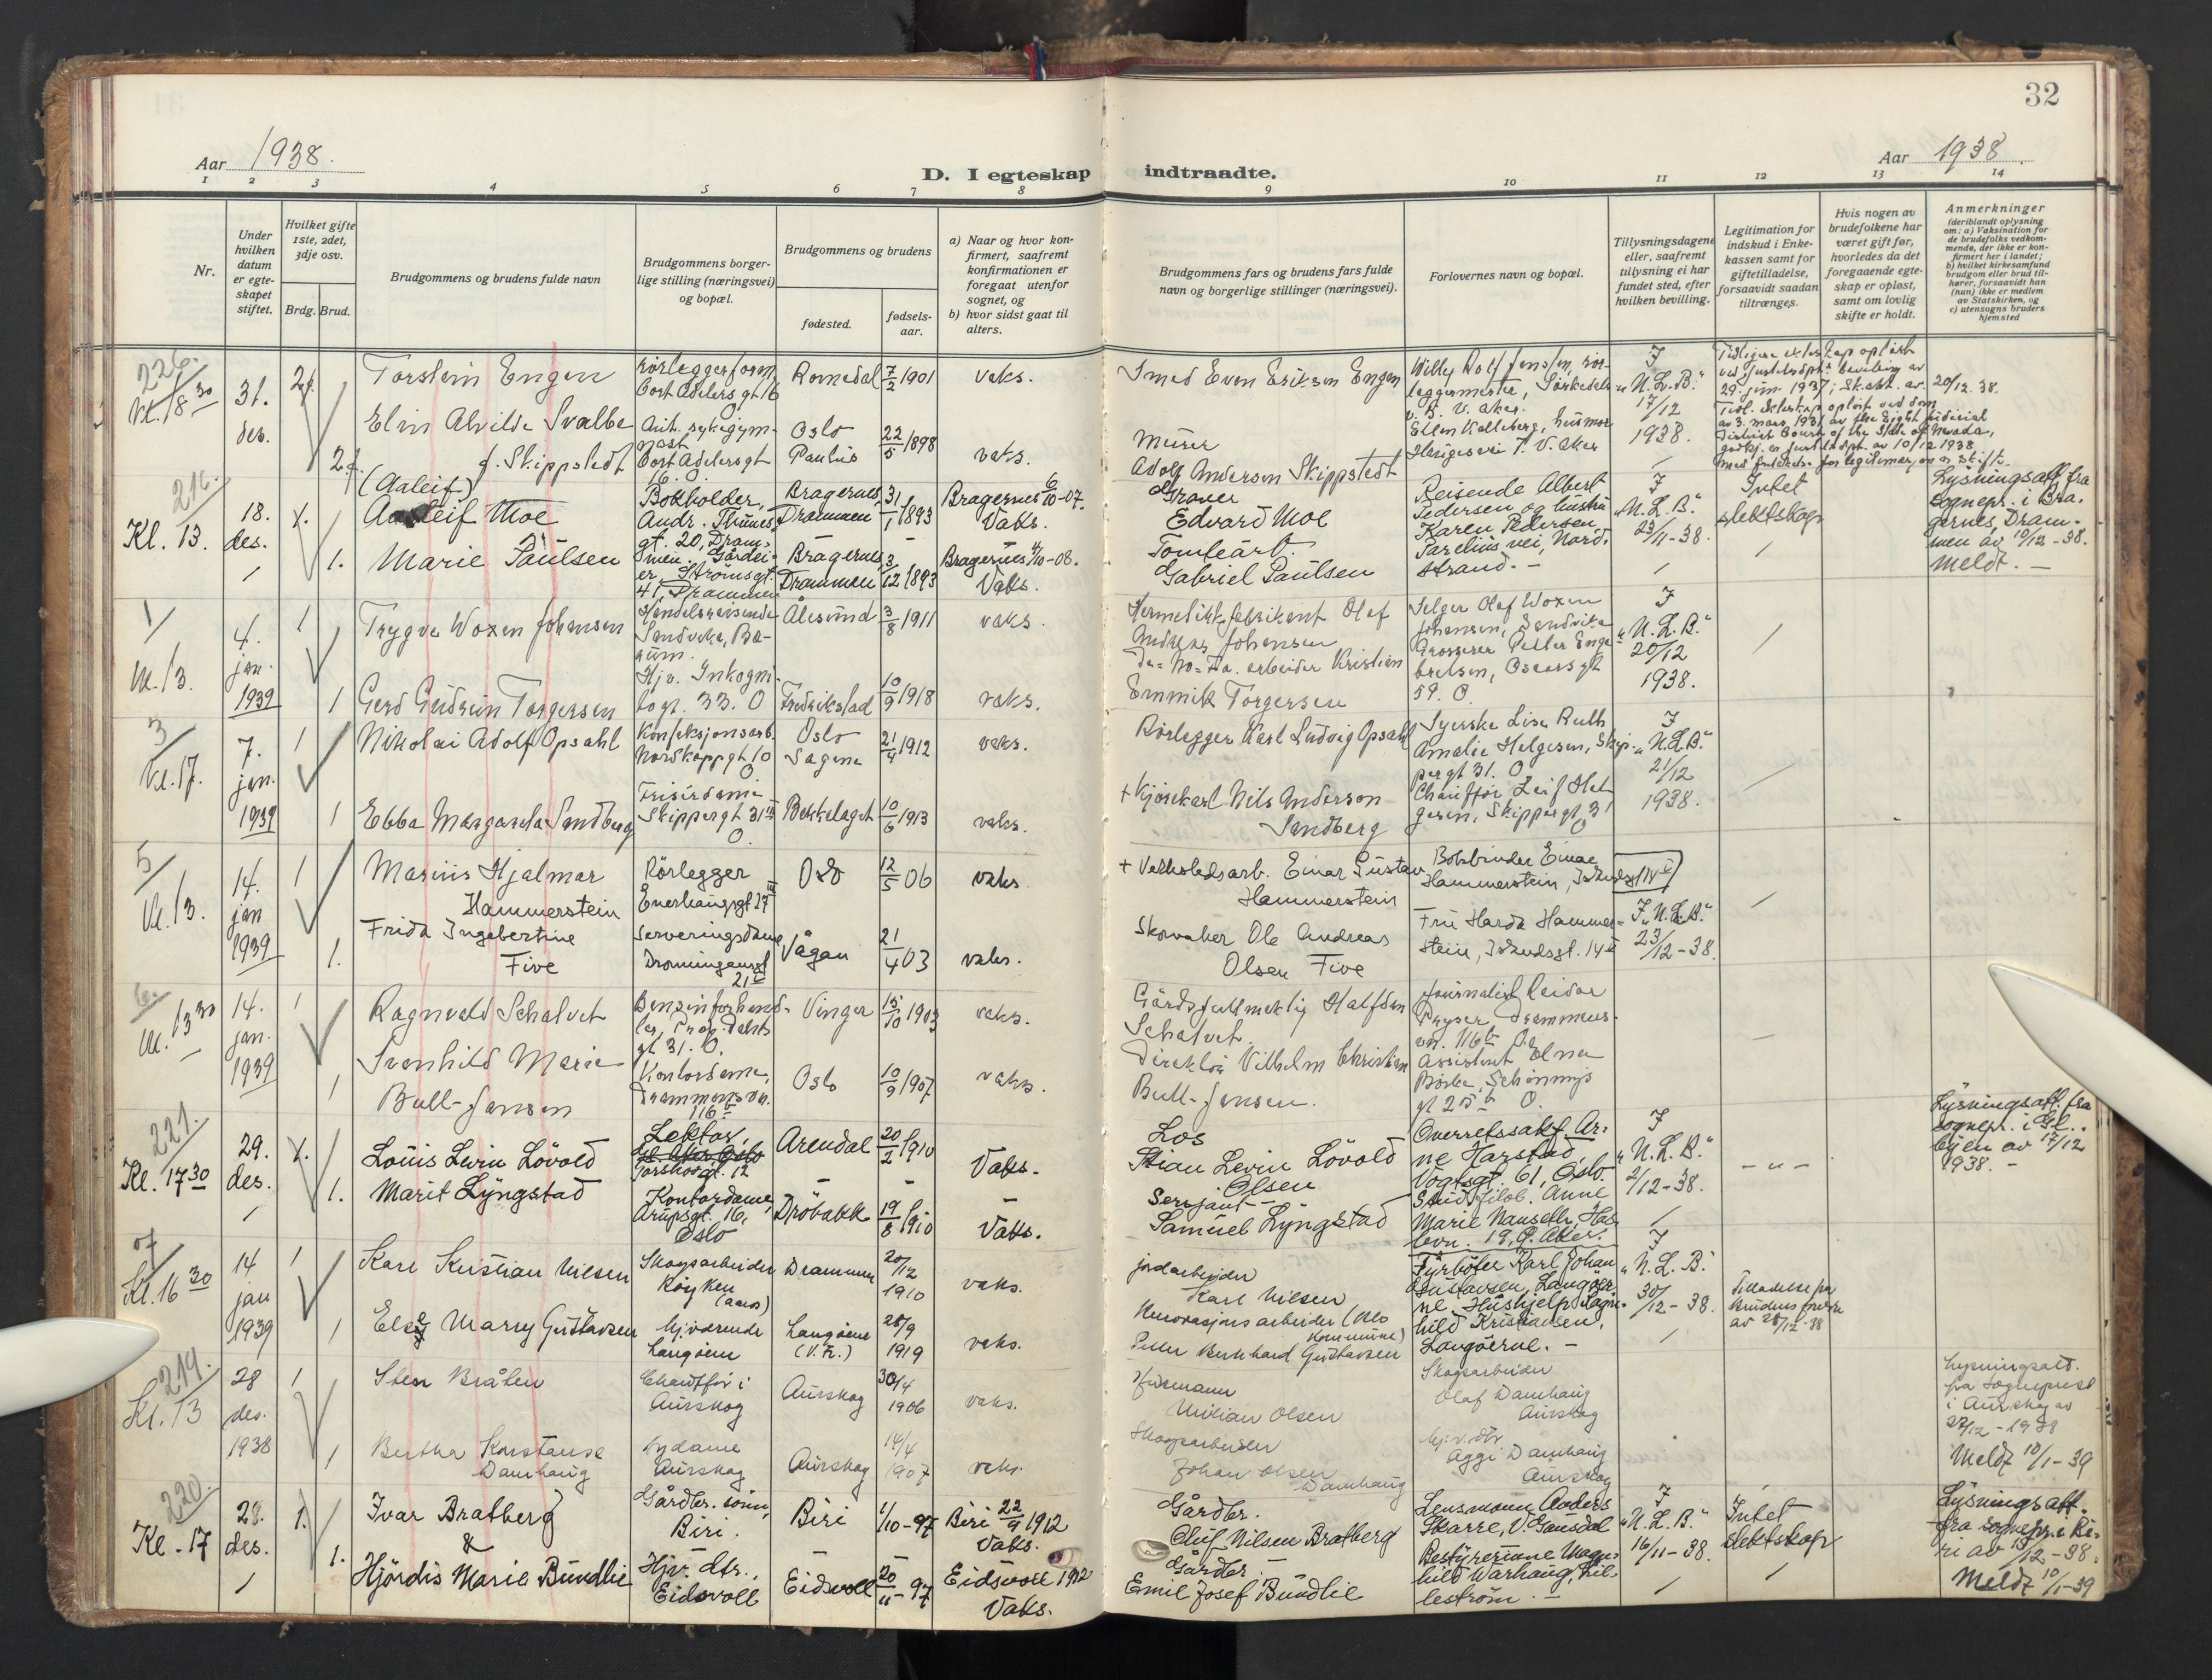 32
Aar 1938.
D. I egteskap indtraadte.
Aar 1938.
1 2 3 4 5 6 7 8 9 10 11 12 13 14
Nr.
Under hvilken datum er egteskapet stiftet.
Hvilket gifte 1ste, 2det, 3dje osv.
Brdg. Brud.
Brudgommens og brudens fulde navn
Brudgommens borgerlige stilling (næringsvei) og bopæl.
Brudgommens og brudens
fødested.
fødselsaar.
a) Naar og hvor konfirmert, saafremt konfirmationen er foregaat utenfor sognet, og
b) hvor sidst gaat til alters.
Brudgommens fars og brudens fars fulde navn og borgerlige stillinger (næringsvei).
Forlovernes navn og bopæl.
Tillysningsdagene eller, saafremt tillysning ei har fundet sted, efter hvilken bevilling.
Legitimation for indskud i Enkekassen samt for giftetilladelse, forsaavidt saadan tiltrænges.
Hvis nogen av brudefolkene har været gift før, hvorledes da det foregaaende egteskap er opløst, samt om lovlig skifte er holdt.
Anmerkninger
(deriblandt oplysning om: a) Vaksination for de brudefolks vedkommende, der ikke er konfirmert her i landet; b) hvilket kirkesamfund brudgom eller brud tilhører, forsaavidt han (hun) ikke er medlem av Statskirken, og c) utensogns bruders hjemsted
226. Kl. 18 30
31. des.
2g.
Torstein Engen
Rørleggerform.
Cort Adelers gt 16
O
Romedal
7/2 1901
vaks.
Smed Even Eriksen Engen
Willy Rolf Jensen, rørleggermester, Sörkedalsv. V. Aker.
"N.L.B."
17/12
1938.
20/12 38.
2g.
Elin Alvilde Svalbe
f. Skippstedt
Cort Adelersgt
16. O.
Oslo
Paulus
22/5 1898
vaks.
Murer
Adolf Andersen Skippstedt
Ellen Kalleberg, husmor
V. Aker
216. Kl. 13.
18. des.
1.
(Aaleif)
Aaleif Moe
Bokholder,
Andr. Thumes
gt. 20, Drammen
Bragernes, Drammen
31/1 1893
Bragernes 6/10-07.
Vaks.
Graver
Edvard Moe
Reisende Albert
Pedersen og hustru
Karen Pedersen
Parelius vei, Nordstrand. -
"N.L.B."
23/11-38.
Intet
slektskap
Lysningsatt. fra
sognepr. i Bragernes, Drammen av 10/12-38.
Meldt. -
1.
Marie Paulsen
Strömsgt.
41, Drammen
Bragernes, Drammen
3/12 1893
Bragernes 4/10-08.
Vaks.
Tomtearb.
Gabriel Paulsen
1/ Kl. 13.
4. jan. 1939
1
Trygve Woxen Johansen
Handelsreisende
Sandvika, Bærum.
Ålesund
3/8 1911
vaks.
Hermetikkfabrikant Olaf
Andreas Johansen
Selger Olaf Woxen
Johansen, Sandvika
"N.L.B."
20/12
1938.
1
Gerd Gudrun Torgersen
Hjv. Inkognitogt. 33. O
Fredrikstad
10/9 1918
vaks.
arbeider Kristian
Emmik Torgersen
Grosserer Petter Engebretsen, Oscarsgt
59. O.
3/ Kl. 17.
7. jan. 1939
1
Nikolai Adolf Opsahl
Konfeksjonsarb.
Norskoppgt 10
O
Oslo
Sagene
21/4 1912
vaks.
Rørlegger Karl Ludvig Opsahl
Syerske Lise Ruth
Amalie Helgesen, Skippergt 31. O
"N.L.B."
21/12
1938.
1
Ebba Margareta Sandberg
Frisørdame
Skippergt 31
O.
Bekkelaget
10/6 1913
vaks.
+ Kjørekarl Nils Anderson
Sandberg
Chauffør Leif Helgesen, Skippergt 31
O
5/ Kl. 13.
14. jan 1939
1
Marius Hjalmar
Hammerstein
Rörlegger
Enerhaugsgt 27
Oslo
12/5 06
vaks.
+ Verkstedsarb. Einar Gustav
Hammerstein
Bokbinder Einar
Hammerstein
"N.L.B."
23/12-38.
1.
Frida Ingebertine
Five
Serveringsdame
Dronningensgt
21
Vågan
21/4 03
vaks.
Skomaker Ole Andreas
Olsen Five
Fru Harda Hammerstein
6. Kl. 13 30
14. jan. 1939
1
Ragnvald Schalvet
Bensinforhandler, Prof. Dahls
gt 31. O.
Vinger
15/10 1903
vaks.
Gårdsfullmektig Halfdan
Schalvet.
Journalist Reidar
Pryser Drammensvn. 116 O.
1
Svanhild Marie
Bull-Jensen
Kontordame,
Drammensvn.
116
Oslo
10/9 1907
vaks.
Direktör Vilhelm Christian
Bull-Jensen.
Assistent Elna
Schönnings
gt 25 O.
221. Kl. 17 30
29. des.
1.
Louis Levin Lövold
Lektor,
Torshovgt. 12
Arendal
20/2 1910
Vaks.
Los
Stian Levin Lövold
Olsen
Overretssakf. Arne Harstad,
Vogtsgt. 61, Oslo.
"N.L.B."
2/12-38.
- " -
Lysningsatt. fra
sognepr. i Gl.byen av 17/12
1938. -
1.
Marit Lyngstad
Kontordame
Arupsgt. 16,
Oslo
Dröbakk
19/8 1910
Vaks.
Serjant
Samuel Lyngstad
Stud. filol. Anne
Marie Nauseth, Haslevn. 19, Ö. Aker.
7/ Kl. 16 30
14 jan 1939
1
Kare Kristian Nilsen
Skogsarbeider
Röyken
(Aaros)
Drammen
20/12
1910
vaks.
jordarbeider
Karl Nilsen
Fyrböter Karl Johan
Gustavsen, Langöerne, Hushjelp Ragnhild Kristiansen,
Langöerne. -
"N.L.B."
30/12-38.
Tilladelse fra
brudens foreldre
av 28/12-38
1
Elsy Marry Gustavsen
hj.værende
Langöene
Langöene
(V.Fr.)
28/9
1919
vaks.
Renovasjonsarbeider (Oslo
kommune)
Peder Bernhard Gustavsen
219. Kl. 13
28 des. 1938
1
Sten Bråten
Chauffør i
Aurskog
Aurskog
30/4
1906
vaks.
Husmann
Milian Olsen
Skogsarbeider
Olaf Damhaug
Aurskog
Lysningsatt.
fra sogneprest
i Aurskog av
27/12-1938
Meldt 10/1-39
1
Bertha Konstanse
Damhaug
Sydame
Aurskog
Aurskog
14/4
1907
vaks.
Skogsarbeider
Johan Olsen
Damhaug
Hj.v. dtr
Aggi Damhaug
Aurskog
220. Kl. 17
28. des.
1.
Ivar Bratberg
&
Gårdbr. sönn,
Biri.
Biri
1/10-97
Biri 22/9 1912
Vaks.
Gårdbr.
Oluf Nilsen Bratberg
Lensmann Anders
Skarre, V. Gausdal
"N.L.B."
16/11-38.
Intet
slektskap
Lysningsatt.
fra sognepr. i Biri av 15/12-38.
Meldt 10/1-39
1.
Hjördis Marie Bundlie
Hjv. dtr.,
Eidsvoll
Eidsvoll
20/11-97
Eidsvoll 1912
Vaks.
Gårdbr.
Emil Josef Bundlie
Bestyrerinne Magnhild Warhaug, Lilleström. -